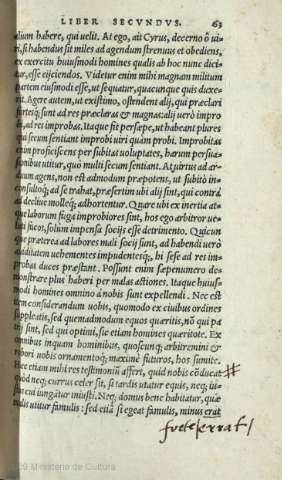 LIBER SECVNDVS. 63
dium habere, qui uelit. At ego, ait Cyrus, decerno ô ui-
ri, si habendus sit miles ad agendum strenuus et obediens,
ex exercitu huiusmodi homines qualis ab hoc nunc dici-
tur, esse eijciendos. Videtur enim mihi magnam militum
partem eiusmodi esse, ut sequatur, quacunque quis duxe-
rit. Agere autem, ut existimo, ostendent alij, qui præclari
fortesq; sunt ad res præclaras & magnas: alij uerò impro
bi, ad res improbas. Itaque fit persæpe, ut habeant plures
qui secum sentiant improbi uiri quàm probi. Improbitas
enim proficiscens per subitas uoluptates, harum persua-
sionibus utitur, quò multi secum sentiant. At uirtus ad ar-
duum agens, non est admodum præpotens, ut subitò in-
consultoq; ad se trahat, præsertim ubi alij sint, qui contrà
ad decliue molleq; adhortentur. Quare ubi ex inertia at-
que laborum fuga improbiores sint, hos ego arbitror ue-
luti fucos, solum impensa socijs esse detrimento. Quicun
que præterea ad labores mali socij sunt, ad habendi uerò
auiditatem uehementes impudentesq;, hi sese ad res im-
probas duces præstant. Possunt enim sæpenumero de-
monstrare plus haberi per malas actiones. Itaque huius-
modi homines omnino à nobis sunt expellendi. Nec est
tem considerandum uobis, quomodo ex ciuibus ordines
suppleatis, sed quemadmodum equos quæritis, nō qui pa
trij sint, sed qui optimi, sic etiam homines quæritote. Ex
omnibus inquam hominibus, quoscunq; arbitremini &
robori uobis ornamentoq; maximè futuros, hos sumite.
Hæc etiam mihi res testimonij afferri, quid nobis cōducat #
quòd neq; currus celer fit, si tardis utatur equis, neq; iu-
stus cui iungitur iniusti. Neq; domus bene habitatur, quæ
malis utitur famulis: sed etiā si egeat famulis, minus errat
forte serrat /
29 Ministerio de Cultura